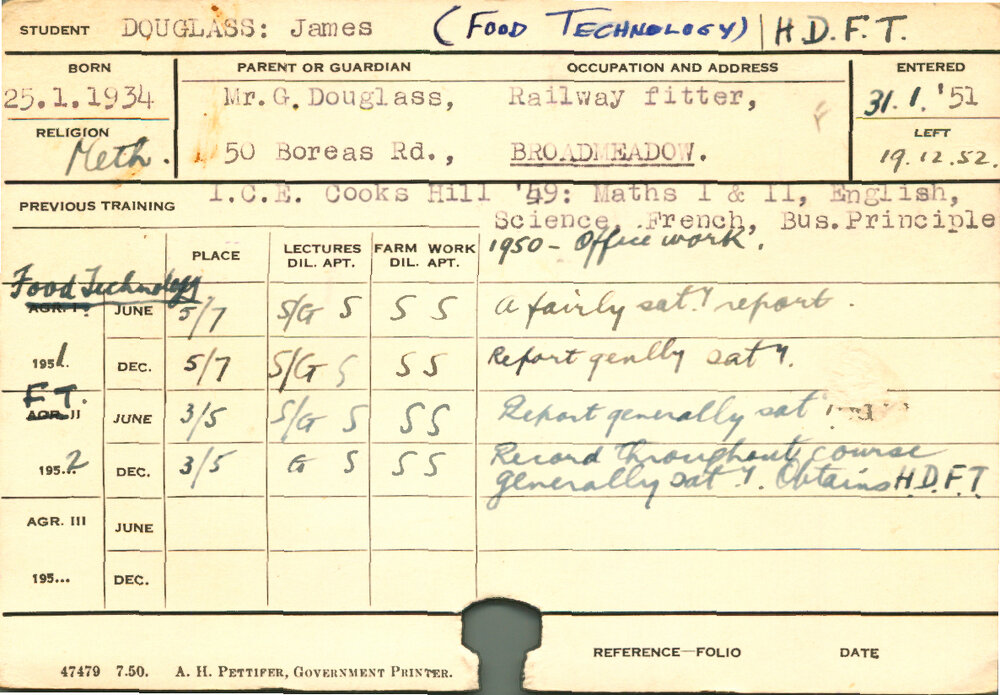 STUDENT DOUGLASS: James (FOOD TECHNOLOGY) | H.D.F.T.
BORN PARENT OR GUARDIAN OCCUPATION AND ADDRESS ENTERED
25.1.1934 Mr.G.Douglass, Railway fitter, 31.1.'51
RELIGION LEFT
Meth. 50 Boreas Rd., BROADMEADOW. 19.12.52.
PREVIOUS TRAINING I.C.E. Cooks Hill '49: Maths I & II, English,
Science French, Bus.Principle
1950 - Office work.
PLACE LECTURES FARM WORK
DIL. APT. DIL. APT.
Food Technology
AGR. I JUNE 5/7 S/G S S S A fairly sat.y report.
1951. DEC. 5/7 S/G S S S Report genlly sat y.
F.T.
AGR. II JUNE 3/5 S/G S S S Report generally sat
1952 DEC. 3/5 G S S S Record throughout course
generally sat y. Obtains H.D.F.T
AGR. III JUNE
195... DEC.
REFERENCE—FOLIO DATE
47479 7.50. A. H. PETTIFER, GOVERNMENT PRINTER.